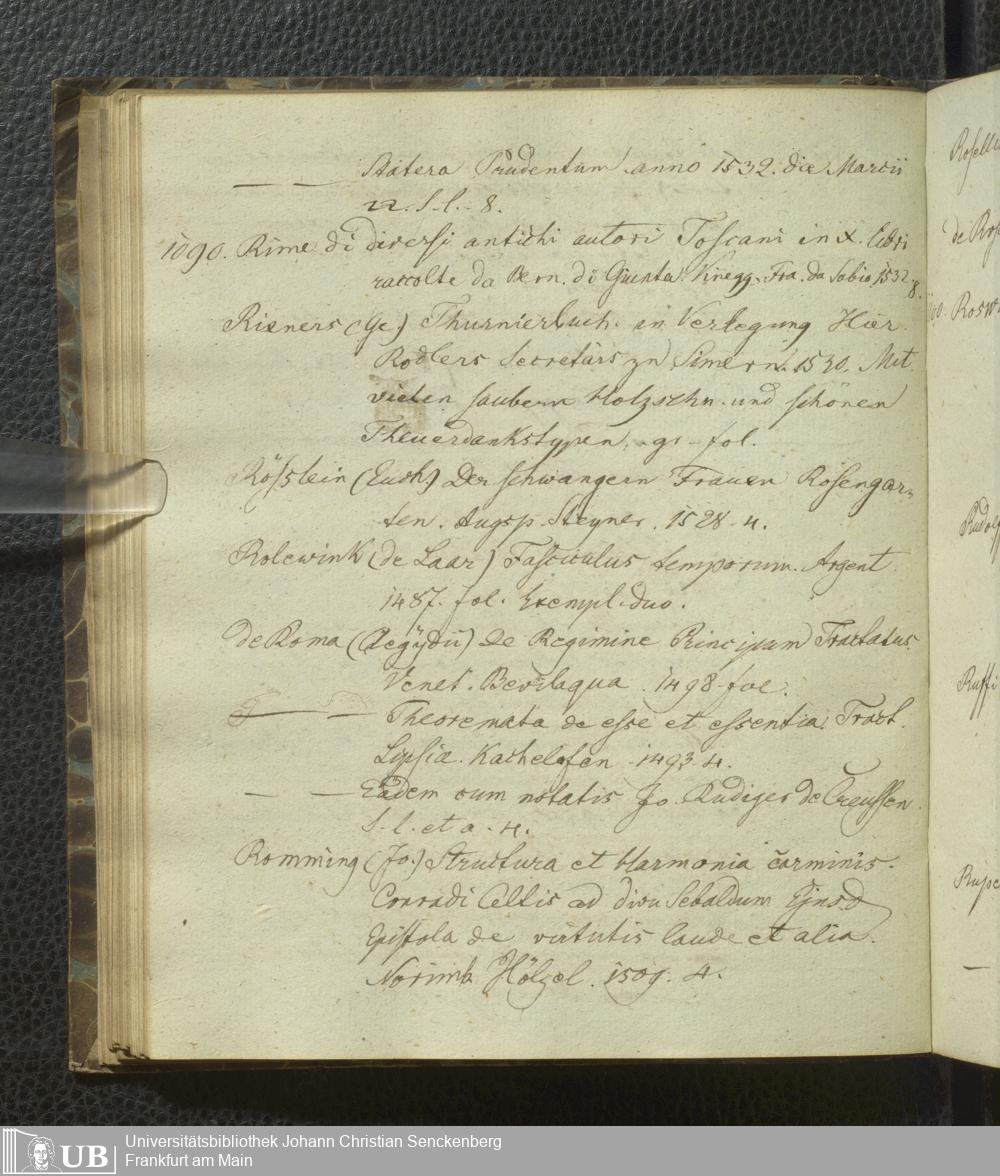 — — Statera Prudentum anno 1532. die Marcii
22. S. l. 8.
1090. Rime di diversi antichi autori Toscani in X. libri
raccolte da Bern. di Giunta. Vinegg. Fra. da Sabio 1532
8.
Rixners (Ge) Thurnierbuch. in Verlegung Hier.
Rodlers Secretärs zu Simern. 1530. Mit
vielen saubern Holzschn. und schönen
Theuerdankstypen. gr. fol.
Rösslein (Euch) Der schwangern Frauen Rosengar-
ten. Augsp. Steyner. 1528. 4.
Rolewink (de Laar) Fasciculus temporum. Argent
1487. fol. Exempl. duo.
de Roma (Aegÿdii) De Regimine Principum Tractatus.
Venet. Bevilaqua. 1498. fol.
— — Theoremata de esse et essentia. Tract.
Lipsiæ. Kachelofen. 1493. 4.
— — Eadem cum notatis Jo. Rudiger de Creussen.
S. l. et a. 4.
Romming (Jo.) Structura et Harmonia carminis.
Conradi Celtis ad divu Sebaldum Ejusd
Epistola de virtutis laude et alia.
Norimb. Hölzel. 1509. 4.
de
Ruffi
Universitätsbibliothek Johann Christian Senckenberg
Frankfurt am Main
UB